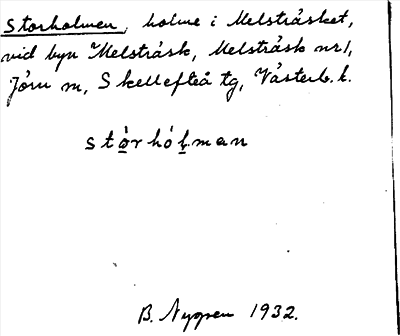 Storholmen, holme i Melsträsket,
vid byn Melsträsk, Melsträsk nr 1,
Jörn sn, Skellefteå tg, Västerb. l.
stòrhólman
B. Nygren 1932.